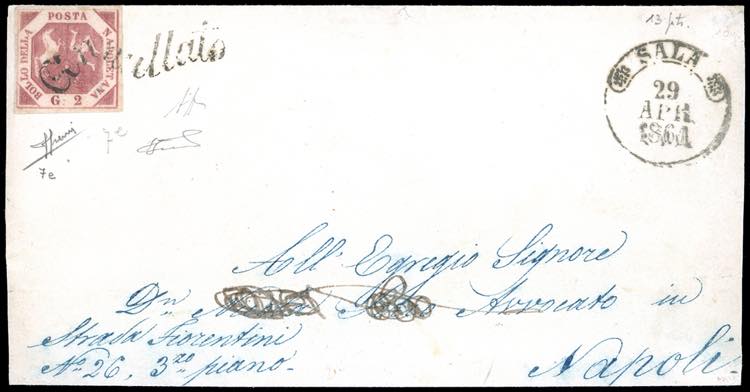 13 pti.
POSTA
NAPOLETANA
BOLLO DELLA
G. 2
Annullato
SALA
29
APR.
1861
7e
7e
All' Egregio Signore
Dn Avvocato in
Strada Fiorentini
No 26, 3zo piano-
Napoli.